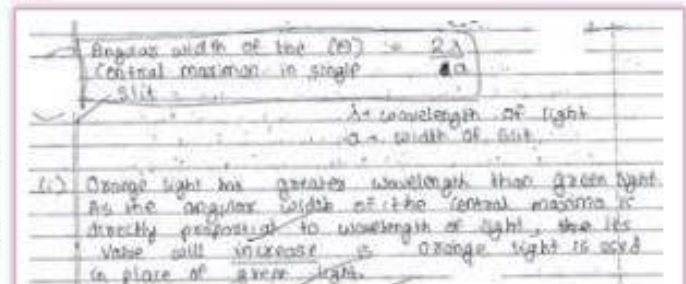 Angular width of the (θ) = 2λ
Central maximan in single a
Slit
λ → wavelength of light
a → width of slit
(i) Orange light has greater wavelength than green light.
As the angular width of the central maxima is
directly propostial to wavelength of light, the its
value will increase is orange light is used
in place of green light.